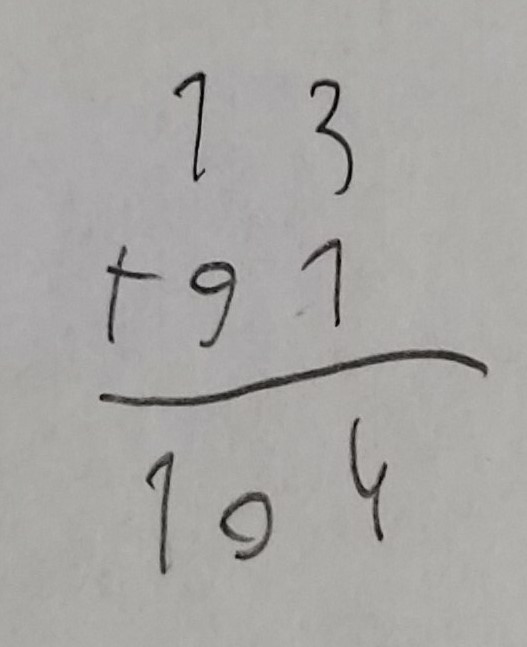 1 3
+ 9 1
1 0 4